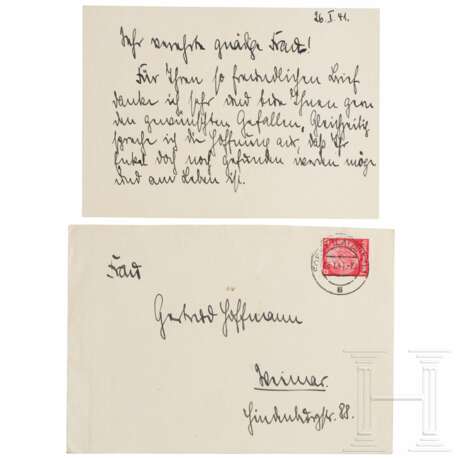 26.I.41.
Sehr verehrte gnädge Frau!
Für Ihren so freundlichen Brief
danke ich sehr und tue Ihnen gern
den gewünschten Gefallen. Gleichzeitig
spreche ich die Hoffnung aus, daß Ihr
Enkel doch noch gefunden werden möge
und am Leben ist.
Frau
Gertrud Hoffmann
Weimar
Hindenburgstr. 88.